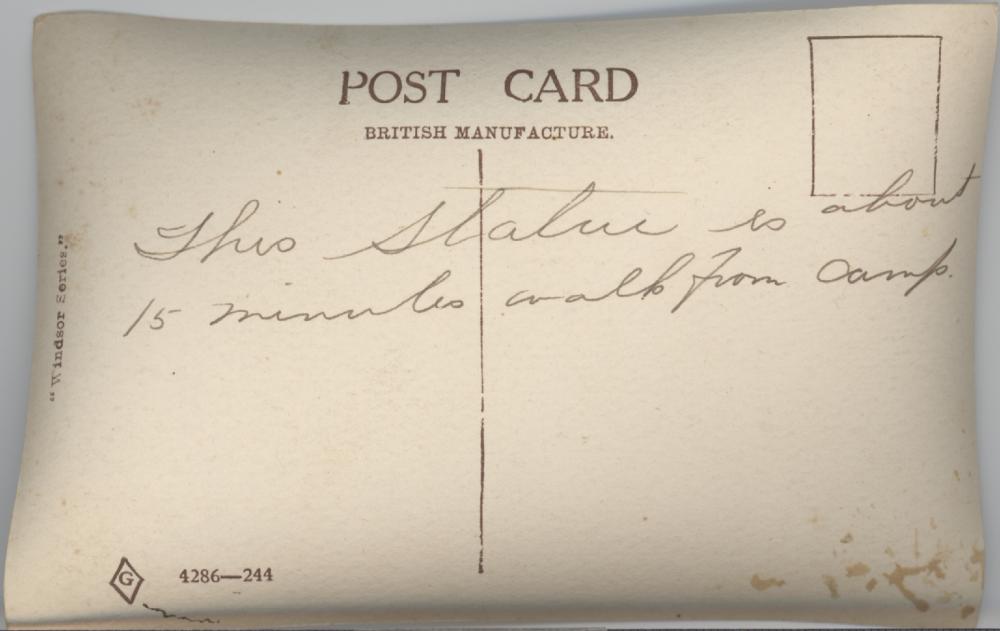 POST CARD
BRITISH MANUFACTURE.
This Statue is about
15 minutes walk from camp.
"Windsor Series."
G 4286—244